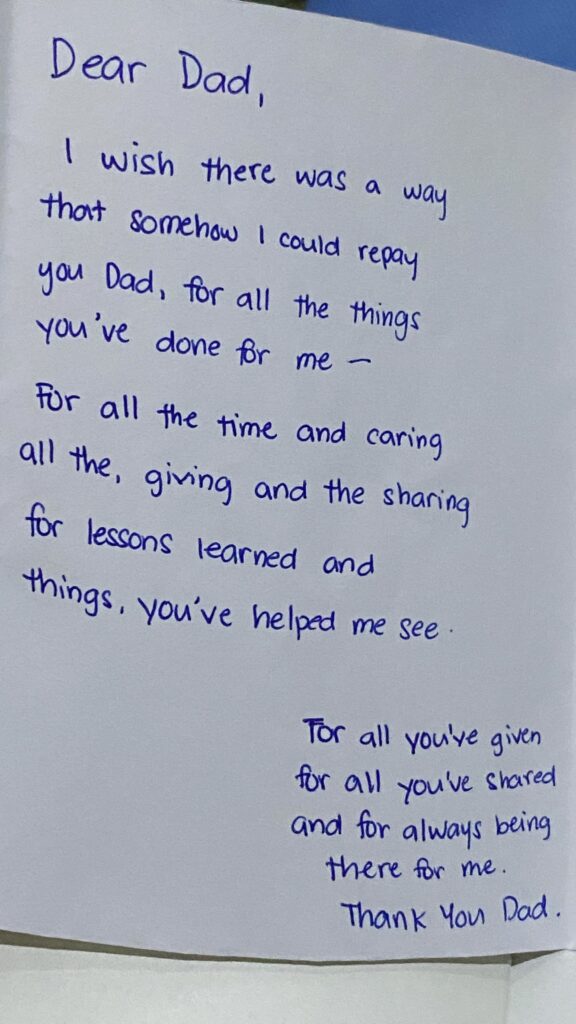 Dear Dad,
I wish there was a way
that somehow I could repay
you Dad, for all the things
you've done for me –
For all the time and caring
all the, giving and the sharing
for lessons learned and
things, you've helped me see.
For all you've given
for all you've shared
and for always being
there for me.
Thank You Dad.